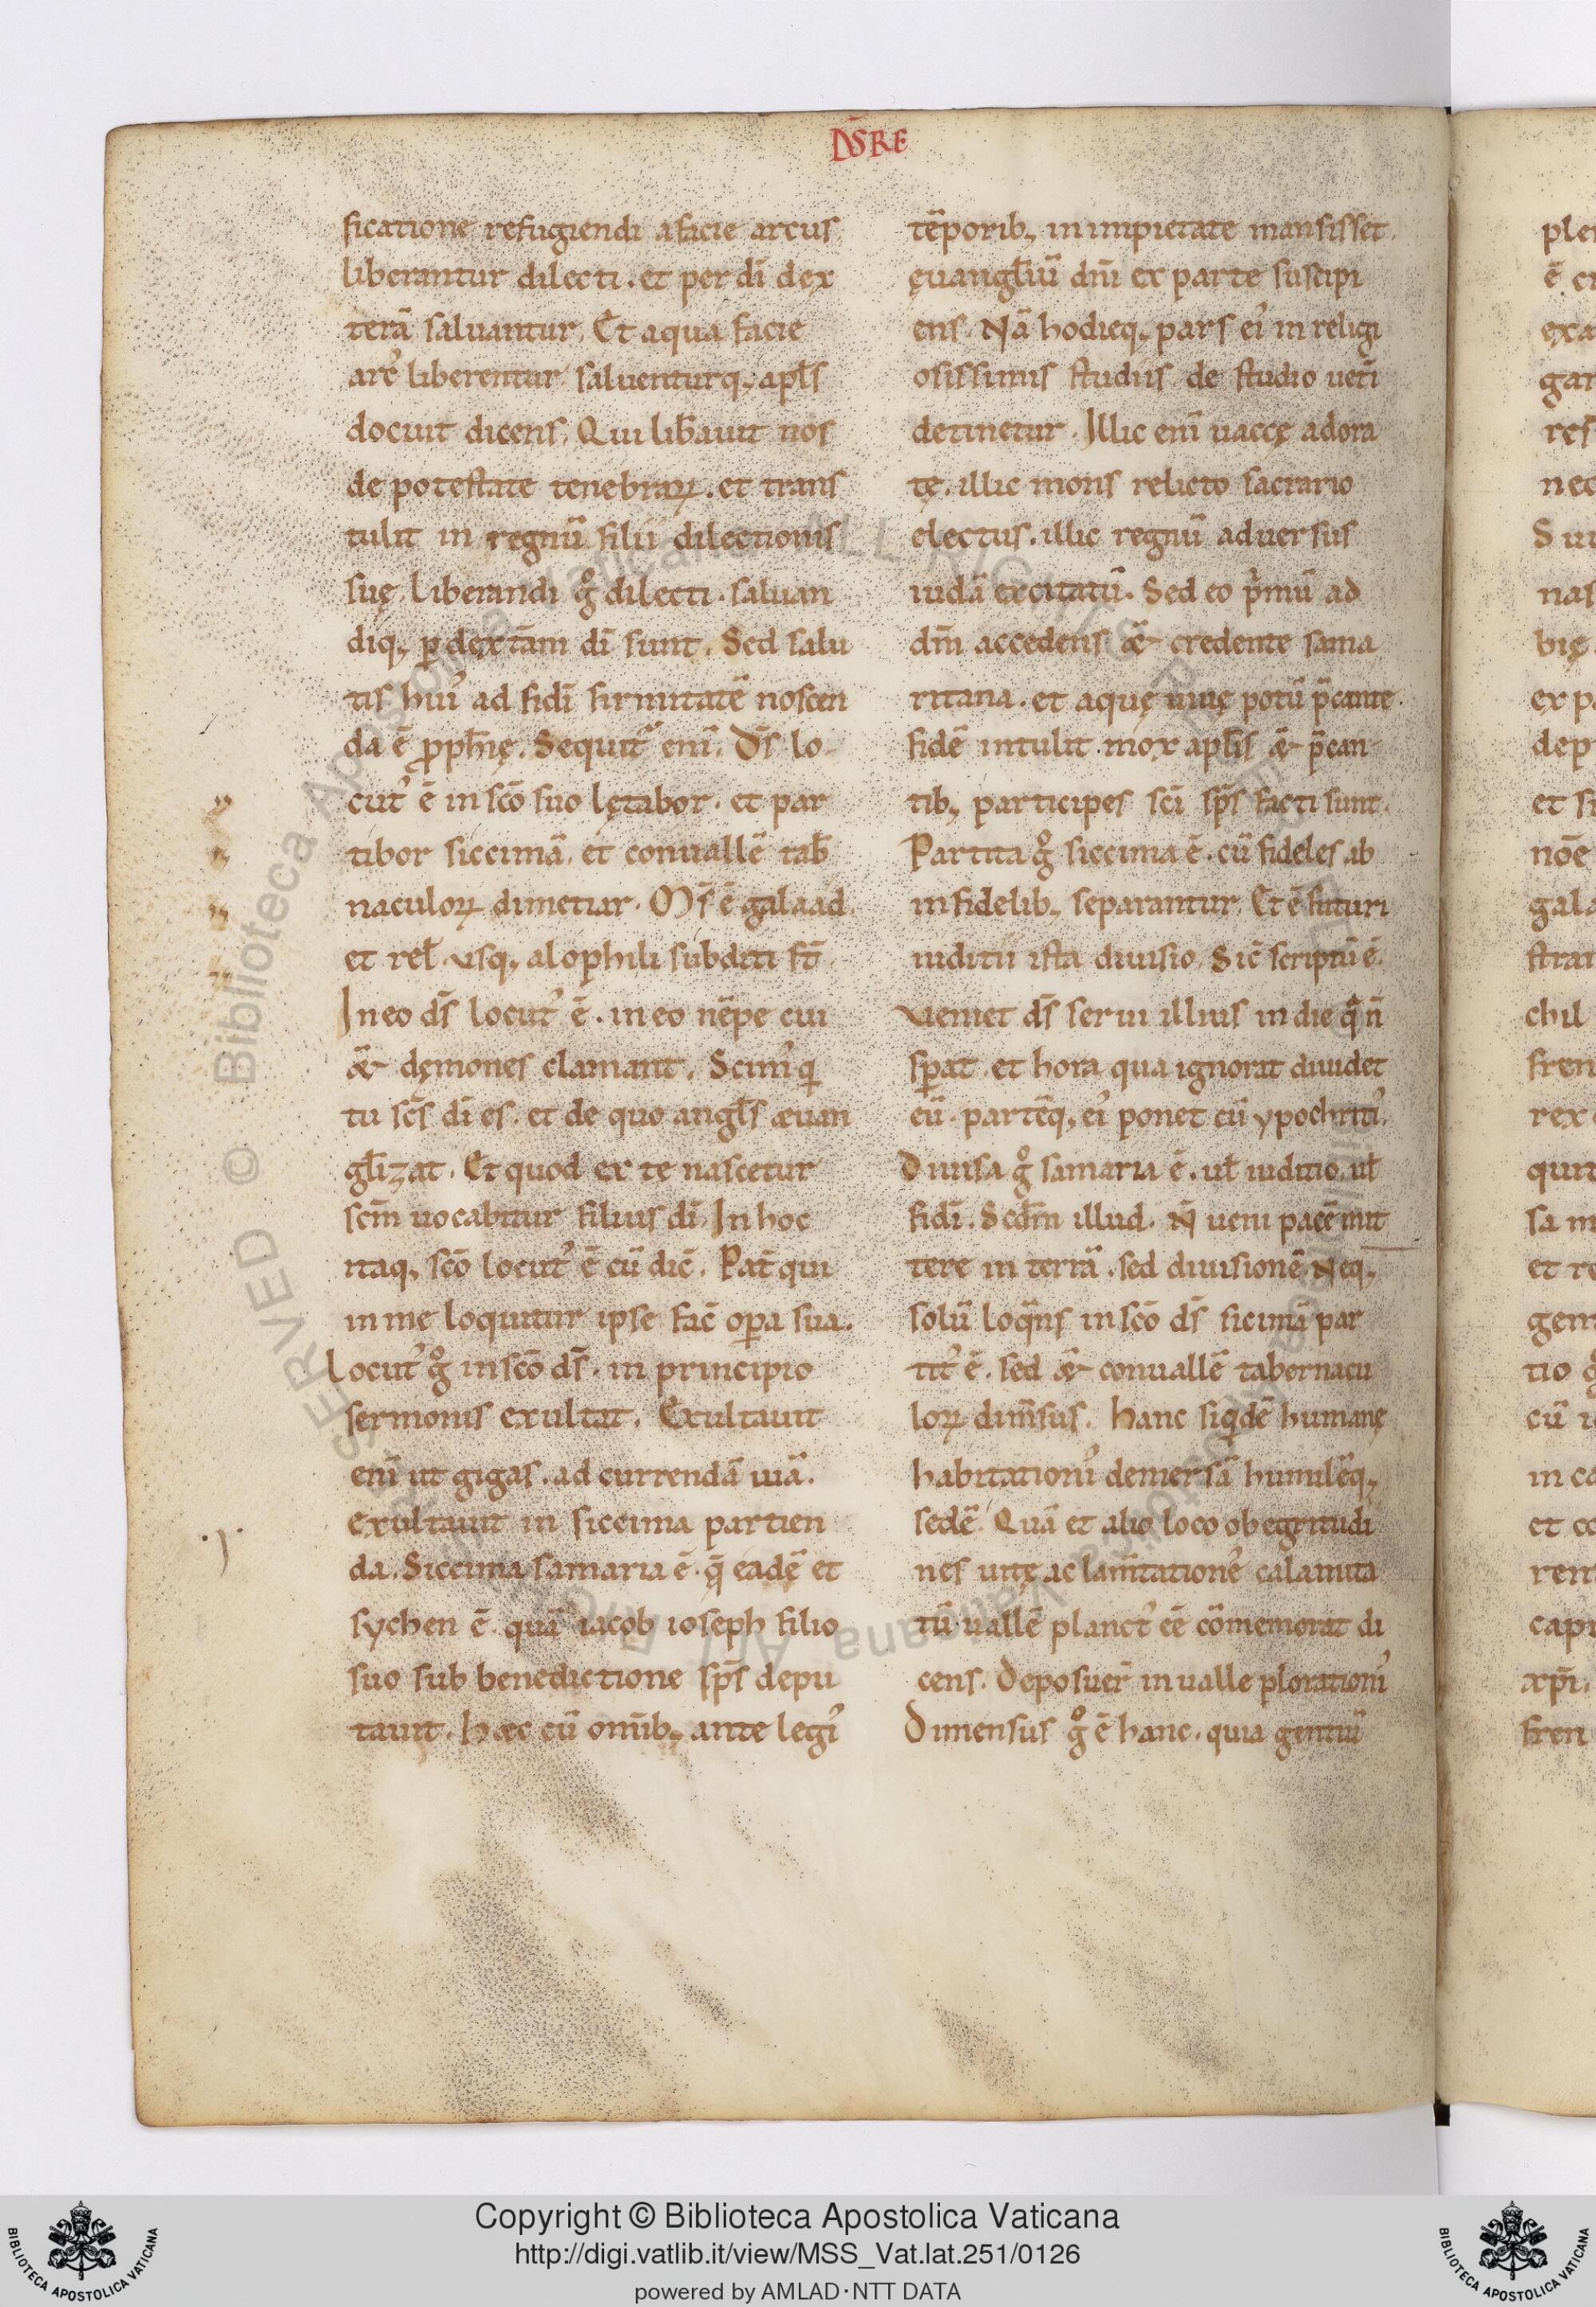 DS̄RE
ficatione refugiendi a facie arcus
liberantur dilecti. et per dī dex
terā saluantur. Et a qua facie
arc᾿ liberentur saluenturq; apl̄s
docuit dicens. Qui lib̄auit nos
de potestate tenebraꝝ. et trans
tulit in regnū filii dilectionis
suę. Liberandi gͦ dilecti. saluan
diq; ꝑ dext̄am dī sunt. Sed salu
tis hui᾿ ad fidī firmitatē noscen
da ē ꝓph̄ię. Sequit᷑ enī. Dš lo
cut᾿ ē in scō suo lętabor. et par
tibor siccimā. et conuallē tab̄
naculoꝝ dimetiar. Ms̄ ē galaad.
et rel̄. usq; alophili subditi st̄.
In eo ds̄ locut᾿ ē. in eo nēpe cui
& dęmones clamant. Scim᾿ qi
tu scs̄ dī es. et de quo angl̄s æuan
gl̄izat. Et quod ex te nascetur
scm̄ uocabitur filius dī. In hoc
itaq; scō locut᾿ ē cū dic̄. Pat̄ qui
in me loquitur ipse fac̄ oꝑa sua.
Locut᾿ gͦ in scō ds̄. in principio
sermonis exultat. Exultauit
enī ut gigas. ad currendā uiā.
Exultauit in siccima partien
da. Siccima samaria ē. q̄ eadē et
sychen ē. quā iacob ioseph filio
suo sub benedictione sp̄s depu
tauit. Hæc cū omīb; ante legi᾿
tēporib; in impietate mansisset.
ęuangl̄iū dnī ex parte suscipi
ens. Nā hodieq; pars ei᾿ in religi
osissimis studiis de studio uet̄i
detinetur. Illic enī uaccę adora
tę. illic mons relicto sacrario
electus. illic regnū aduersus
iudā excitatū. Sed eo pⁱmū ad
dm̄ accedens & credente sama
ritana. et aquę uiuę potū p̄cante.
fidē intulit. mox apl̄is & p̄can
tib; participes scī sp̄s facti sunt.
Partita gͦ siccima ē. cū fideles ab
infidelib; separantur. Et ē futuri
iuditii ista diuisio. Sic̄ scriptū ē.
Veniet ds̄ serui illius in die qͣ n̄
sꝑat. et hora qua ignorat diuidet
eū. partēq; ei᾿ ponet cū ypochriti᾿.
Diuisa gͦ samaria ē. ul̄ iuditio. ul̄
fidī. Scd̄m illud. N̄ ueni pacē mit
tere in terrā. sed diuisionē. Neq;
solū loqͣns in scō ds̄ sicimā par
tit᾿ ē. sed & conuallē tabernacu
loꝝ dim̄sus. Hanc siqⁱdē humanę
habitationi᾿ demersā humilēq;
sedē. Quā et alio loco ob egritudi
nes uitę ac lam̄tatione᾿ calamita
tū. uallē planct᾿ eē cōmemorat di
cens. Deposuer̄ in ualle plorationi᾿
Dimensus gͦ ē hanc. quia gentiū
Copyright © Biblioteca Apostolica Vaticana
http://digi.vatlib.it/view/MSS_Vat.lat.251/0126
powered by AMLAD·NTT DATA
BIBLIOTECA APOSTOLICA VATICANA
BIBLIOTECA APOSTOLICA VATICANA